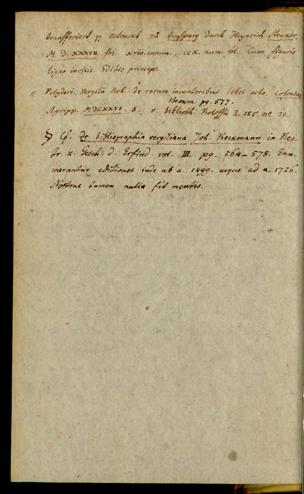 transferiert
gedruckt zu Augspurg durch Heynrich Steyner,
M. D. XXXVII. fol. XVIII. CCX. num. fol. Cum figuris
ligno incisis. Editio princeps.
Polydori Vergilii Urb. de rerum inventoribus libri octo. Coloniae
pg. 577.
Agripp. MDCXXVI. 8. v. Biblioth. 
§) Cf. De bibliographia vergiliana Joh. Beckmann in Bey
tr. z. Gesch. d. Erfind. vol. III. pg. 564–578. Enu
merantur editiones inde ab a. 1499. usque ad a. 1726.
Nostrae tamen nulla fit mentio.